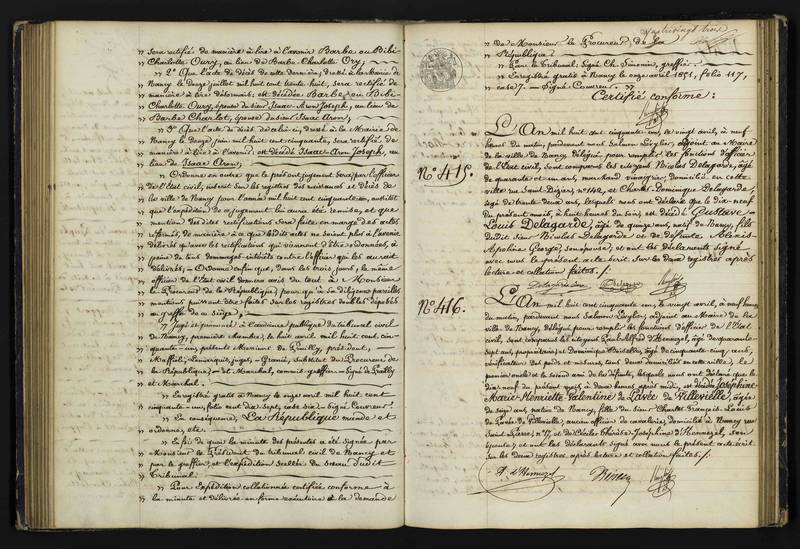 " sera rectifié de manière à lire à l'avenir Barbe ou Bibi-
" Charlotte Oury, au lieu de Barbe Charlotte Ory,
" 2° Que l'acte de décès de cette dernière, dressé à la Mairie de
" Nancy le douze juillet mil huit cent trente huit, sera rectifié de
" manière à lire désormais, est décédée Barbe, ou Bibi-
" Charlotte Oury, épouse du sieur Isaac Aron Joseph, au lieu de
" Barbe Charlot, épouse du sieur Isaac Aron,
" 3° Que l'acte de décès de celui-ci, dressé à la Mairie de
" Nancy le douze juin mil huit cent cinquante, sera rectifié, de
" manière à lire à l'avenir, est décédé Isaac Aron Joseph, au
" lieu de Isaac Aron,
" Ordonne en outre que le présent jugement sera, par l'officier
" de l'État civil, inscrit sur les registres des naissances et décès de
" la ville de Nancy pour l'année mil huit cent cinquante-un, aussitôt
" que l'expédition de ce jugement lui aura été remise, et que
" mention des dites rectifications sera faite en marge des actes
" réformés, de manière à ce que lesdits actes ne soient plus à l'avenir
" délivrés qu'avec les rectifications qui viennent d'être ordonnées, à
" peine de tous dommages-intérêts contre l'officier qui les aurait
" délivrés; Ordonne enfin que, dans les trois jours, le même
" officier de l'État civil donnera avis du tout à Monsieur
" le Procureur de la République, pour qu'à sa diligence pareilles
" mentions puissent être faites sur les registres doubles déposés
" au greffe de ce siège,
" Jugé et prononcé à l'audience publique du tribunal civil
" de Nancy, première chambre, le huit avril mil huit cent cin-
" quante-un, présents Messieurs de président,
" juges, substitut du Procureur de
" la République, Maréchal, commis-greffier - Signé
" et Maréchal.
" Enregistré gratis à Nancy le onze avril mil huit cent
" cinquante-un, folio cent dix sept, case six - Signé Couvreur.
" En conséquence, La République mande et
" ordonne, etc.
" En foi de quoi la minute des présentes a été signée par
" Monsieur le Président du tribunal civil de Nancy et
" par le greffier, et l'expédition scellée du sceau dudit
" Tribunal.
" Pour Expédition collationnée certifiée conforme à
" la minute et délivrée en forme exécutoire à la demande
quatrevingt trois
" de Monsieur le Procureur de la
" République.
" Pour le Tribunal: Signé Ch. Simonin, greffier.
" Enregistré gratis à Nancy le onze avril 1851, folio 117,
" case 7. - Signé Couvreur. "
Certifié conforme:
N° 415.
L'An mil huit cent cinquante-un, le vingt avril, à neuf
heures du matin, pardevant nous Salmon Lévylier, adjoint au Maire
de la ville de Nancy, délégué pour remplir les fonctions d'officier
de l'État civil, sont comparus les citoyens Nicolas Delagarde, âgé
de quarante et un ans, marchand vinaigrier, domicilié en cette
ville rue Saint Dizier n° 142, et Charles Dominique Delagarde,
âgé de trente deux ans, lesquels nous ont déclaré que le dix-neuf
du présent mois, à huit heures du soir, est décédé Gustave-
Louis Delagarde, âgé de quinze ans, natif de Nancy, fils
dudit sieur Nicolas Delagarde et de défunte Alexis-
Apoline George, son épouse, et ont les déclarants signé
avec nous le présent acte écrit sur les deux registres après
lecture et collation faites./.
N° 416.
L'An mil huit cent cinquante un, le vingt avril, à neuf heures
du matin, pardevant nous Salomon Lévylier, adjoint au Maire de la
ville de Nancy, délégué pour remplir les fonctions d'officier de l'État
civil, sont comparus les citoyens Alfred d'Hennezel, âgé de quarante-
sept ans, propriétaire, et Dominique âgé de cinquante-cinq ans,
vérificateur des poids et mesures, tous deux domiciliés en cette ville, le
premier oncle et le second ami de la défunte, lesquels nous ont déclaré que le
dix-neuf du présent mois, à deux heures après midi, est décédée Joséphine
Marie Henriette Valentine de Lavée de Villevielle, âgée
de onze ans, native de Nancy, fille du sieur Charles François Louis
de Lavée de Villevielle, ancien officier de cavalerie, domicilié à Nancy rue
Saint n° 17, et de Cécile Charles Joséphine d'Hennezel, son
épouse; et ont les déclarants signé avec nous le présent acte écrit
sur les deux registres, après lecture et collation faites./.
A. d'Hennezel